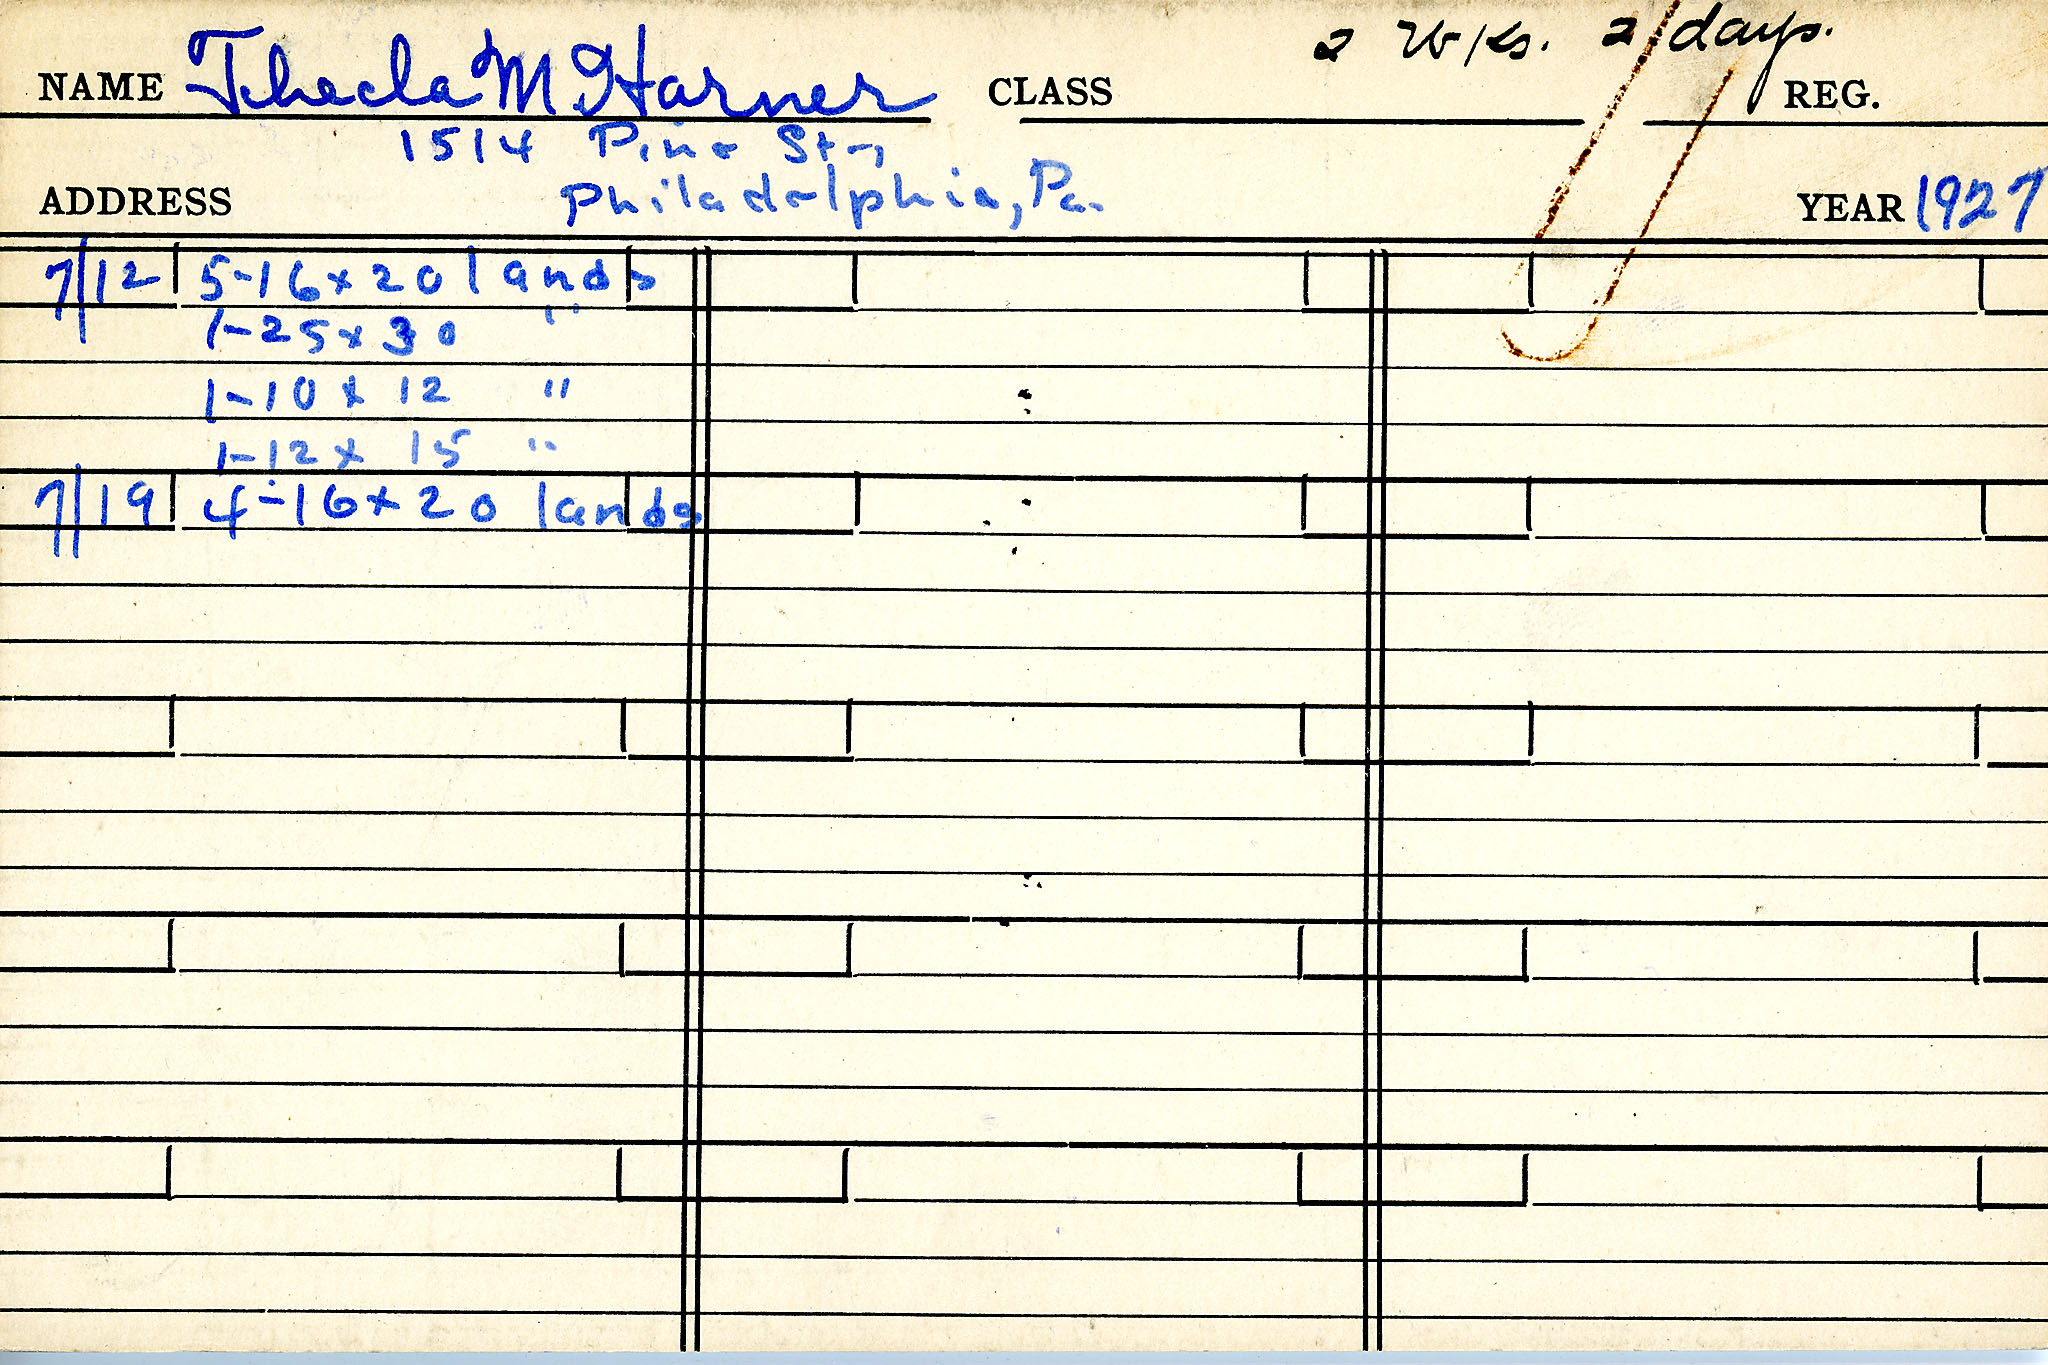 2 Wks. 2 days.
NAME Thecla M Harner CLASS REG.
1514 Pine St.,
ADDRESS Philadelphia, Pa. YEAR 1927
7/12 5-16x20 lands
1-25x30 "
1-10x12 "
1-12x15 "
7/19 4-16x20 lands.